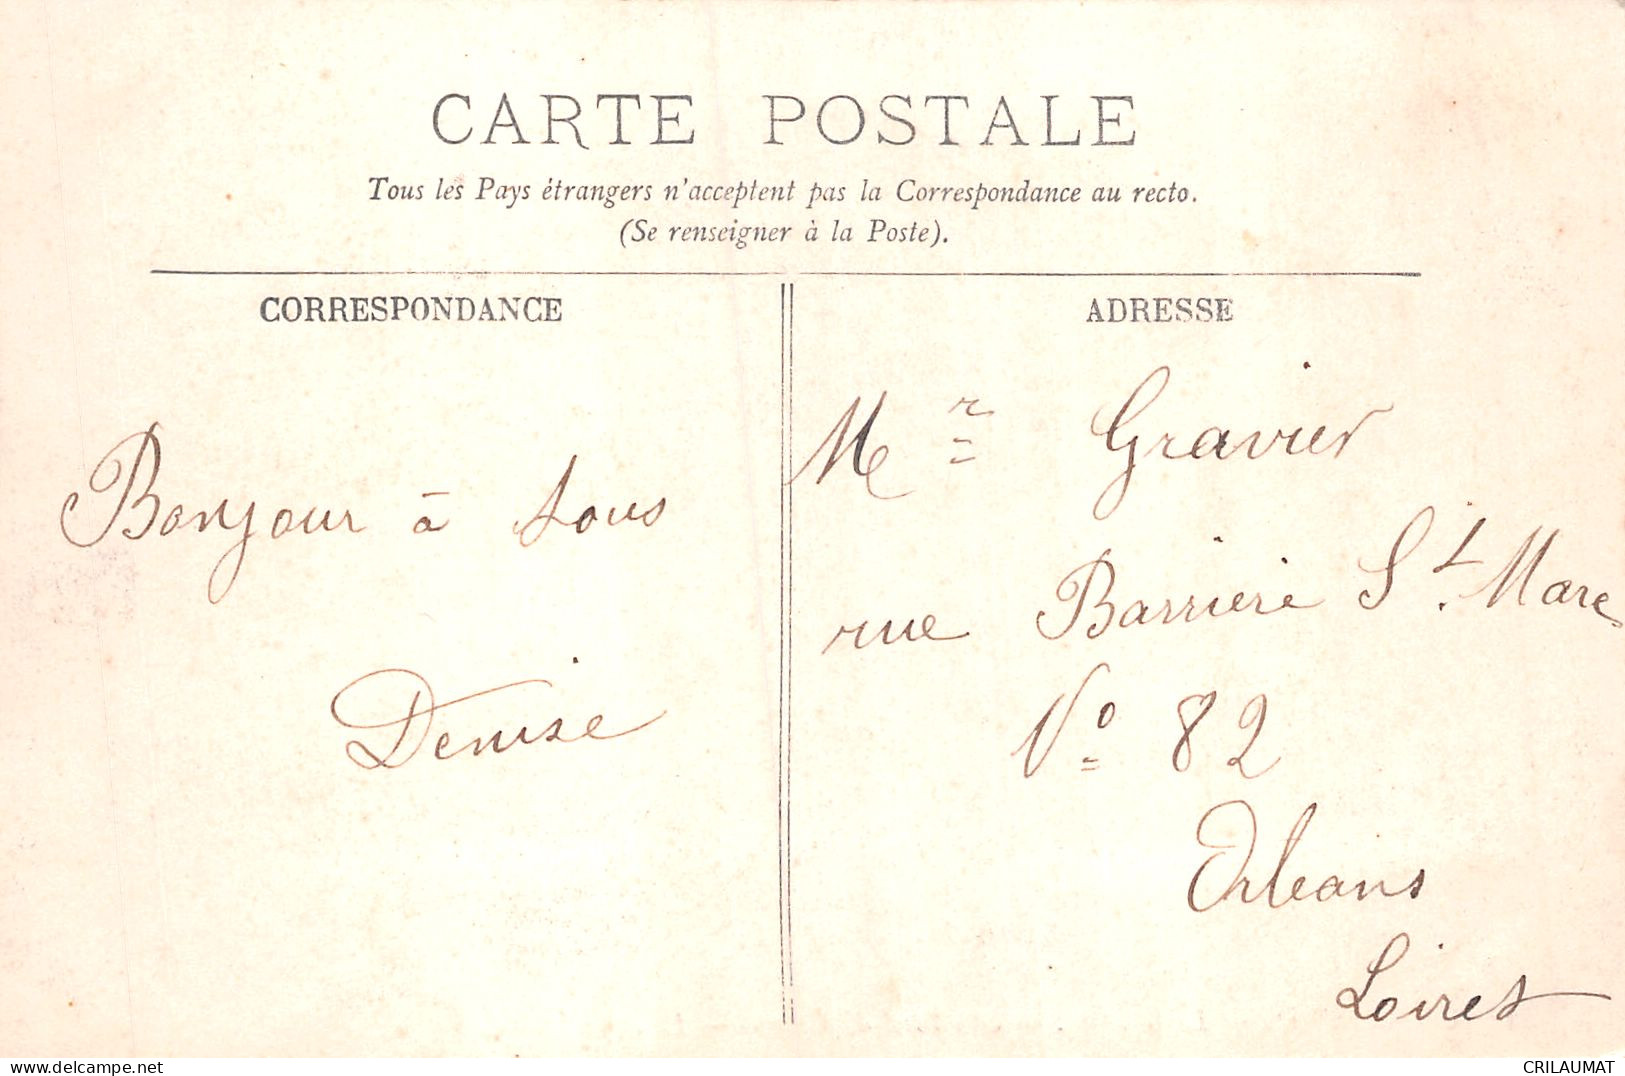 CARTE POSTALE
Tous les Pays étrangers n'acceptent pas la Correspondance au recto.
(Se renseigner à la Poste).
CORRESPONDANCE
Bonjour à tous
Denise
ADRESSE
Mr Gravier
rue Barriere St. Marc
No 82
Orleans
Loiret
delcampe.net
CRILAUMAT